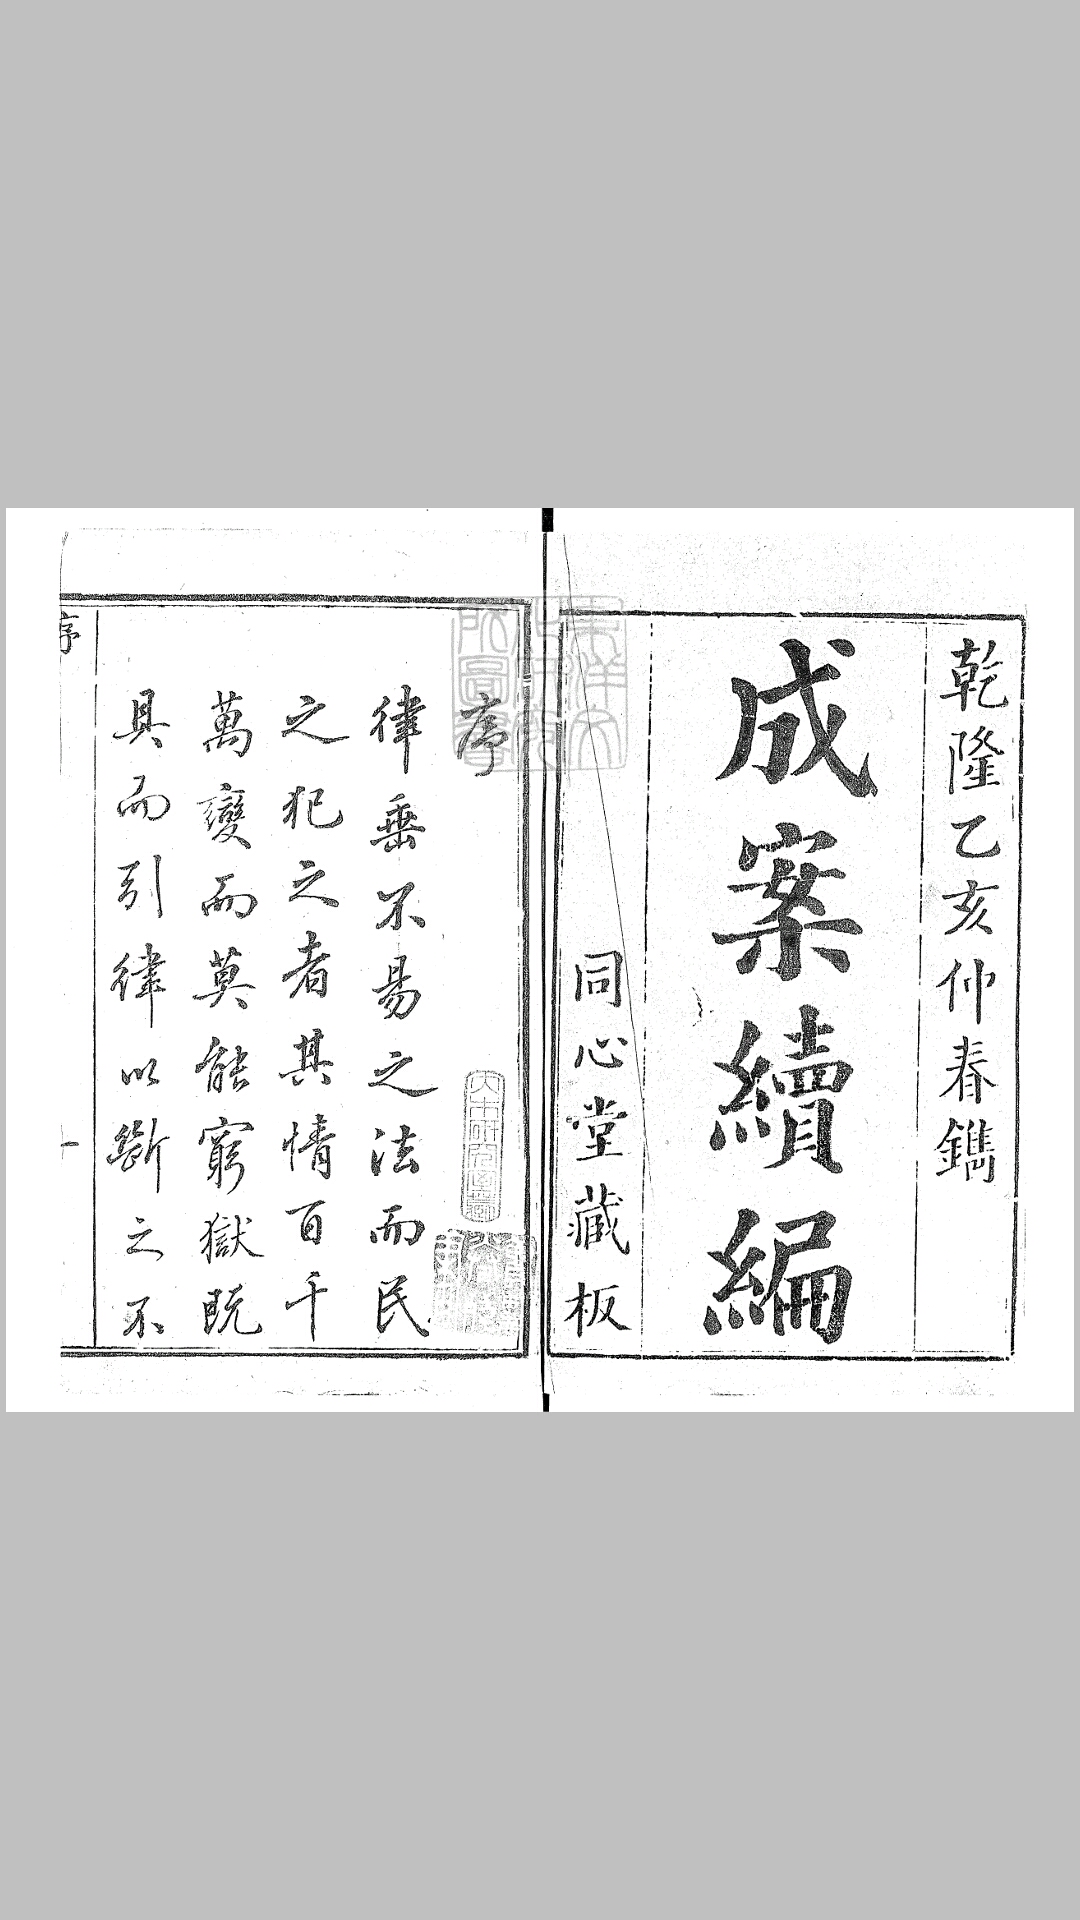 乾隆乙亥仲春鐫
成案續編
同心堂藏板
序
律垂不易之法而民
之犯之者其情百千
萬變而莫能窮獄既
具而引律以斷之不
序
一